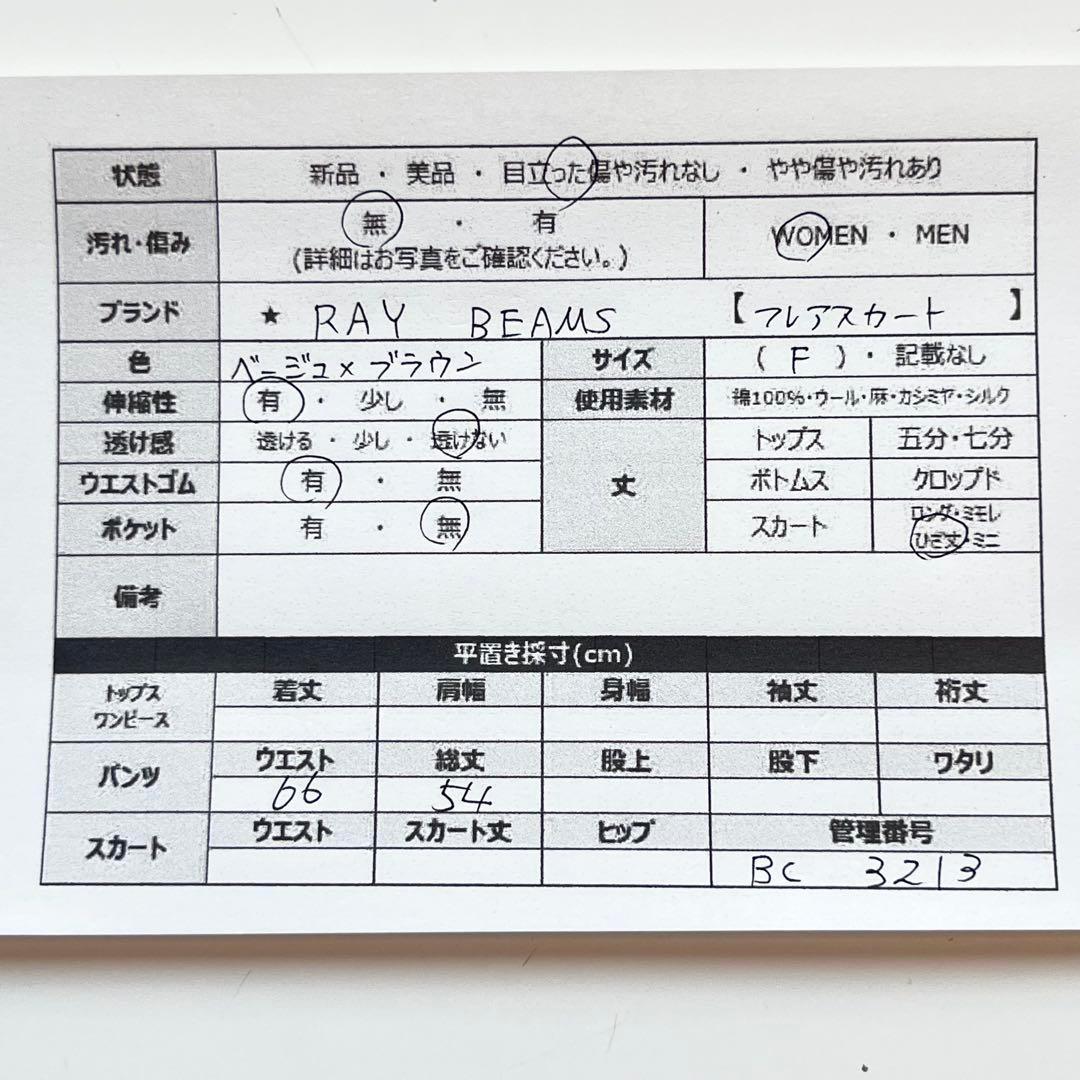 状態 新品 ・ 美品 ・ 目立った傷や汚れなし ・ やや傷や汚れあり
汚れ・傷み 無 ・ 有 WOMEN ・ MEN
(詳細はお写真をご確認ください。)
ブランド ★ RAY BEAMS 【フレアスカート】
色 ベージュ×ブラウン サイズ ( F )・ 記載なし
伸縮性 有 ・ 少し ・ 無 使用素材 綿100%・ウール・麻・カシミヤ・シルク
透け感 透ける ・ 少し ・ 透けない 丈 トップス 五分・七分
ウエストゴム 有 ・ 無 ボトムス クロップド
ポケット 有 ・ 無 スカート ロング・ミモレ
ひざ丈・ミニ
備考
平置き採寸(cm)
トップス
ワンピース 着丈 肩幅 身幅 袖丈 裄丈
パンツ ウエスト 総丈 股上 股下 ワタリ
66 54
スカート ウエスト スカート丈 ヒップ 管理番号
BC 3213